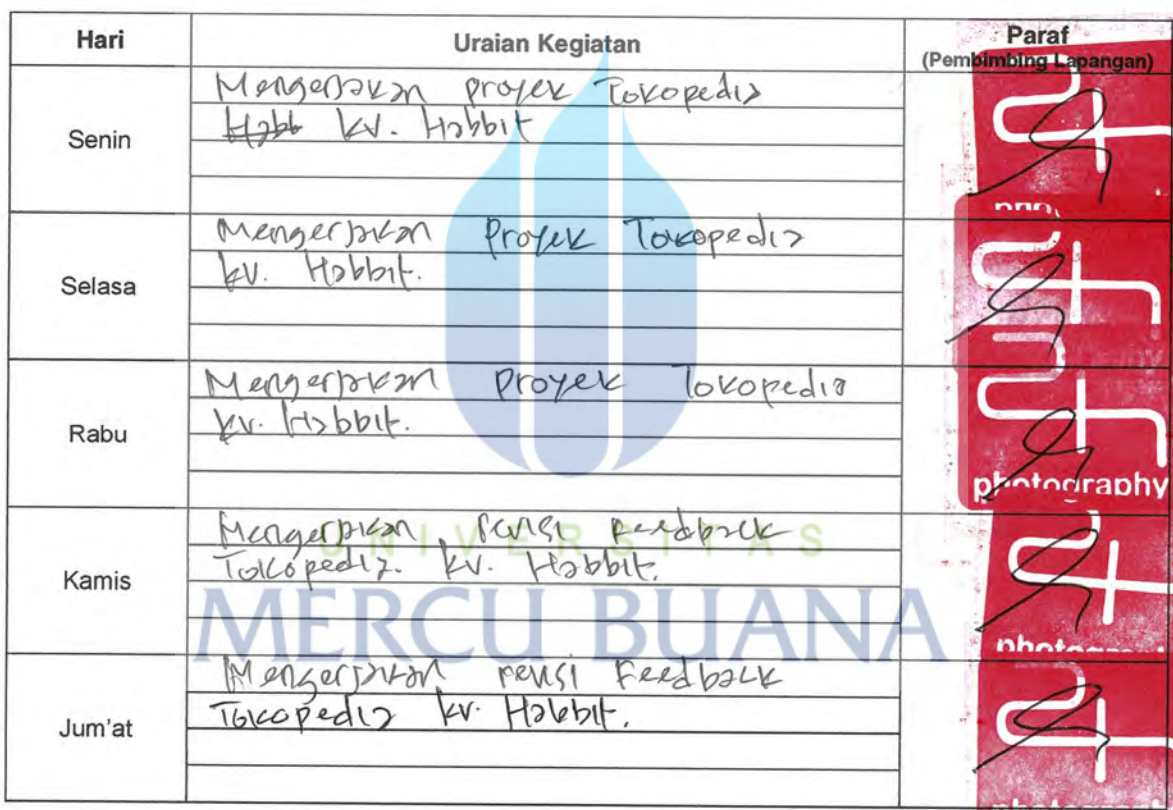 Hari Uraian Kegiatan Paraf
(Pembimbing Lapangan)
Senin
Mengerjakan proyek Tokopedia
Habb KV. Habbit
Selasa
Mengerjakan Proyek Tokopedia
kv. Habbit.
Rabu
Mengerjakan proyek Tokopedia
kv. Habbit.
photography
Kamis
Mengerjakan revisi Feedback
Tokopedia. kv. Habbit.
Jum'at
Mengerjakan revisi Feedback
Tokopedia kv. Habbit.
UNIVERSITAS
MERCU BUANA